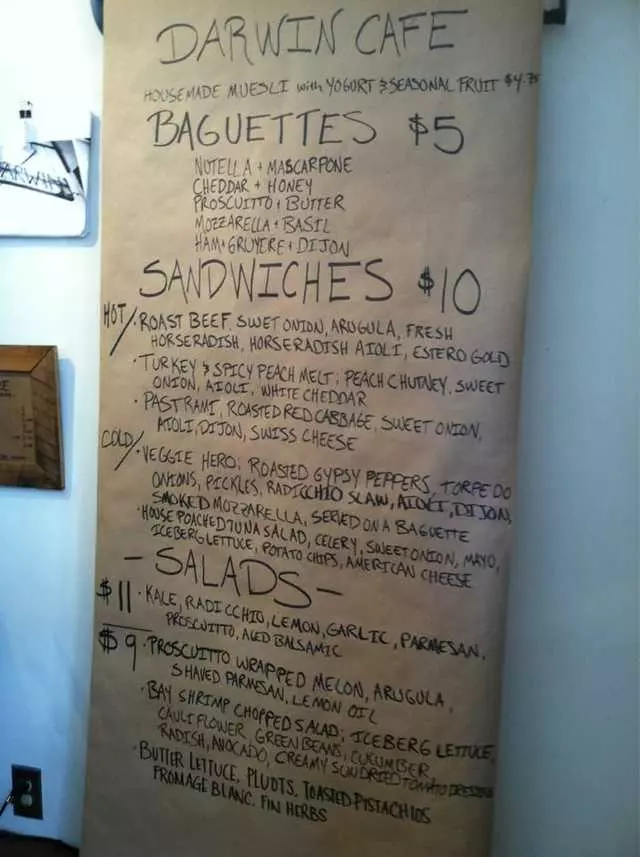 DARWIN CAFE
HOUSEMADE MUESLI with YOGURT & SEASONAL FRUIT $4.75
BAGUETTES $5
NUTELLA + MASCARPONE
CHEDDAR + HONEY
PROSCUITTO + BUTTER
MOZZARELLA + BASIL
HAM + GRUYERE + DIJON
SANDWICHES $10
HOT/ · ROAST BEEF, SWET ONION, ARUGULA, FRESH
HORSERADISH, HORSERADISH AIOLI, ESTERO GOLD
· TURKEY & SPICY PEACH MELT; PEACH CHUTNEY, SWEET
ONION, AIOLI, WHITE CHEDDAR
· PASTRAMI, ROASTED RED CABBAGE, SWEET ONION,
AIOLI, DIJON, SWISS CHEESE
COLD/ · VEGGIE HERO; ROASTED GYPSY PEPPERS, TORPEDO
ONIONS, PICKLES, RADICCHIO SLAW, AIOLI, DIJON,
SMOKED MOZZARELLA, SERVED ON A BAGUETTE
· HOUSE POACHED TUNA SALAD, CELERY, SWEET ONION, MAYO,
ICEBERG LETTUCE, POTATO CHIPS, AMERICAN CHEESE
- SALADS -
$11 · KALE, RADICCHIO, LEMON, GARLIC, PARMESAN,
PROSCUITTO, AGED BALSAMIC
$9 · PROSCUITTO WRAPPED MELON, ARUGULA,
SHAVED PARMESAN, LEMON OIL
· BAY SHRIMP CHOPPED SALAD; ICEBERG LETTUCE,
CAULIFLOWER, GREEN BEANS, CUCUMBER,
RADISH, AVOCADO, CREAMY SUNDRIED TOMATO DRESSING
· BUTTER LETTUCE, PLUOTS, TOASTED PISTACHIOS
FROMAGE BLANC, FIN HERBS